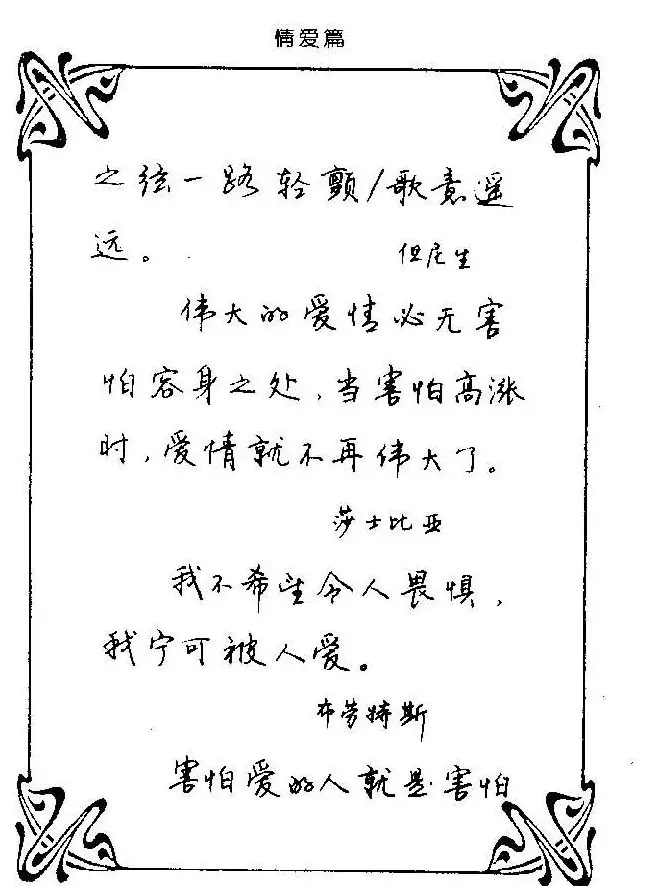 情爱篇
之弦一路轻颤/歌意遥
远。
但尼生
伟大的爱情必无害
怕容身之处,当害怕高涨
时,爱情就不再伟大了。
莎士比亚
我不希望令人畏惧,
我宁可被人爱。
布劳特斯
害怕爱的人就是害怕